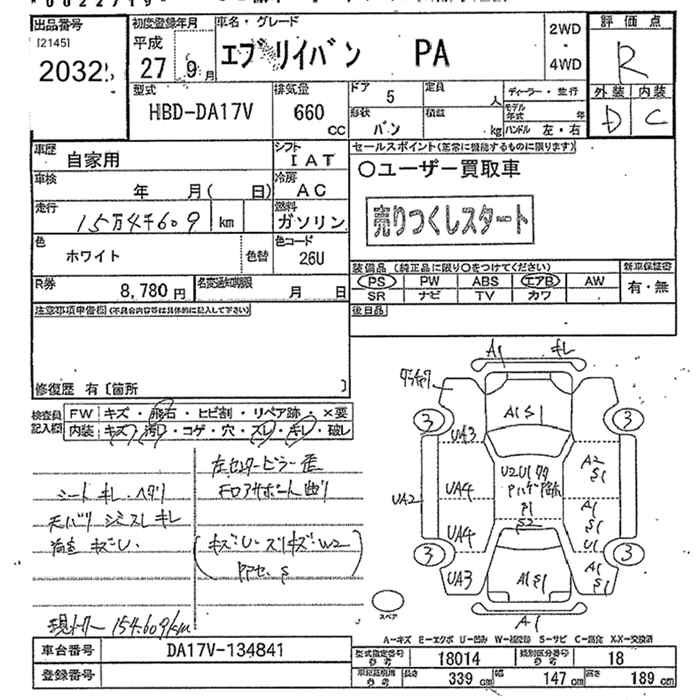 出品番号 初度登録年月 車名・グレード 2WD・4WD 評価点
[2145] 2032 平成27年9月 エブリイバン PA R
外装 内装
D C
型式 排気量 ドア 5 定員 人 ディーラー・並行
HBD-DA17V 660 CC 形状 バン 積載 kg モデル年式 年
ハンドル 左・右
車歴 自家用 シフト IAT セールスポイント(正常に機能するものに限ります)
車検 年 月( 日) 冷房 AC 〇ユーザー買取車
走行 15万4千609 km 燃料 ガソリン 売りつくしスタート
色 ホワイト 色替 色コード 26U
装備品(純正品に限り〇をつけてください) 新車保証書
PS PW ABS エアB AW 有・無
SR ナビ TV カワ
R券 8,780円 名変通知期限 月 日
後日品
注意事項申告欄(不具合内容等は具体的に記入して下さい)
修復歴 有〔箇所 〕
検査員記入欄 FW キズ・飛石・ヒビ割・リペア跡・×要
内装 キズ・汚れ・コゲ・穴・スレ・キレ・破レ
左センターピラー歪
シート キレ・ヘタリ フロアサポート曲り
天バリ シミ スレ キレ
荷室 キズU.
現メーター 154.609km
A1 キレ
A1 S1
3 3
UA3
A2
S1
UA2 UA4
U2U1
P1
S2
A1
S1
U1
UA4
3 3
UA3 A1S1 A1
S1
スペア
A1
A-キズ E-エクボ U-凹み W-補修跡 S-サビ C-腐食 XX-交換済
車台番号 DA17V-134841 型式指定番号 参考 18014 類別区分番号 参考 18
登録番号 車両諸元用 参考 長さ 339 cm 幅 147 cm 高さ 189 cm